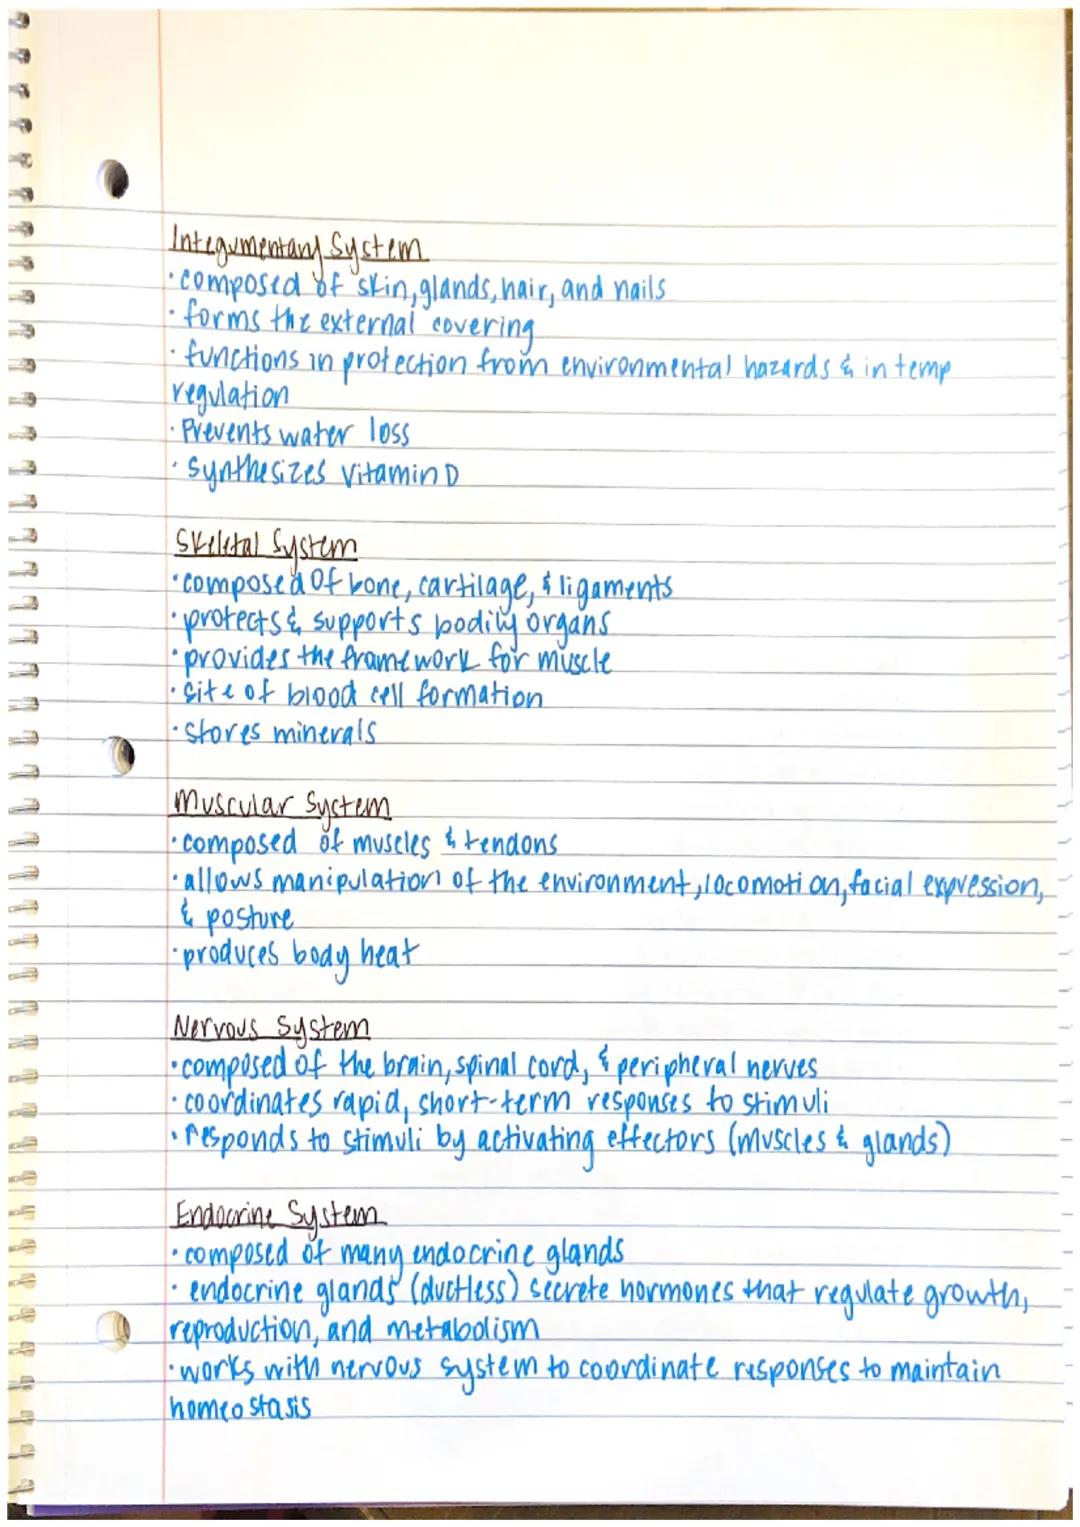 Integumentary System
·composed of skin, glands, hair, and nails
·forms the external covering
·functions in protection from environmental hazards & in temp
regulation
·Prevents water loss
·Synthesizes Vitamin D
Skeletal System
·composed of bone, cartilage, & ligaments
·protects & supports bodily organs
·provides the framework for muscle
·site of blood cell formation
·stores minerals
Muscular System
·composed of muscles & tendons
·allows manipulation of the environment, locomotion, facial expression,
& posture
·produces body heat
Nervous System
·composed of the brain, spinal cord, & peripheral nerves
·coordinates rapid, short-term responses to stimuli
·responds to stimuli by activating effectors (muscles & glands)
Endocrine System
·composed of many endocrine glands
·endocrine glands (ductless) secrete hormones that regulate growth,
reproduction, and metabolism
·works with nervous system to coordinate responses to maintain
homeostasis